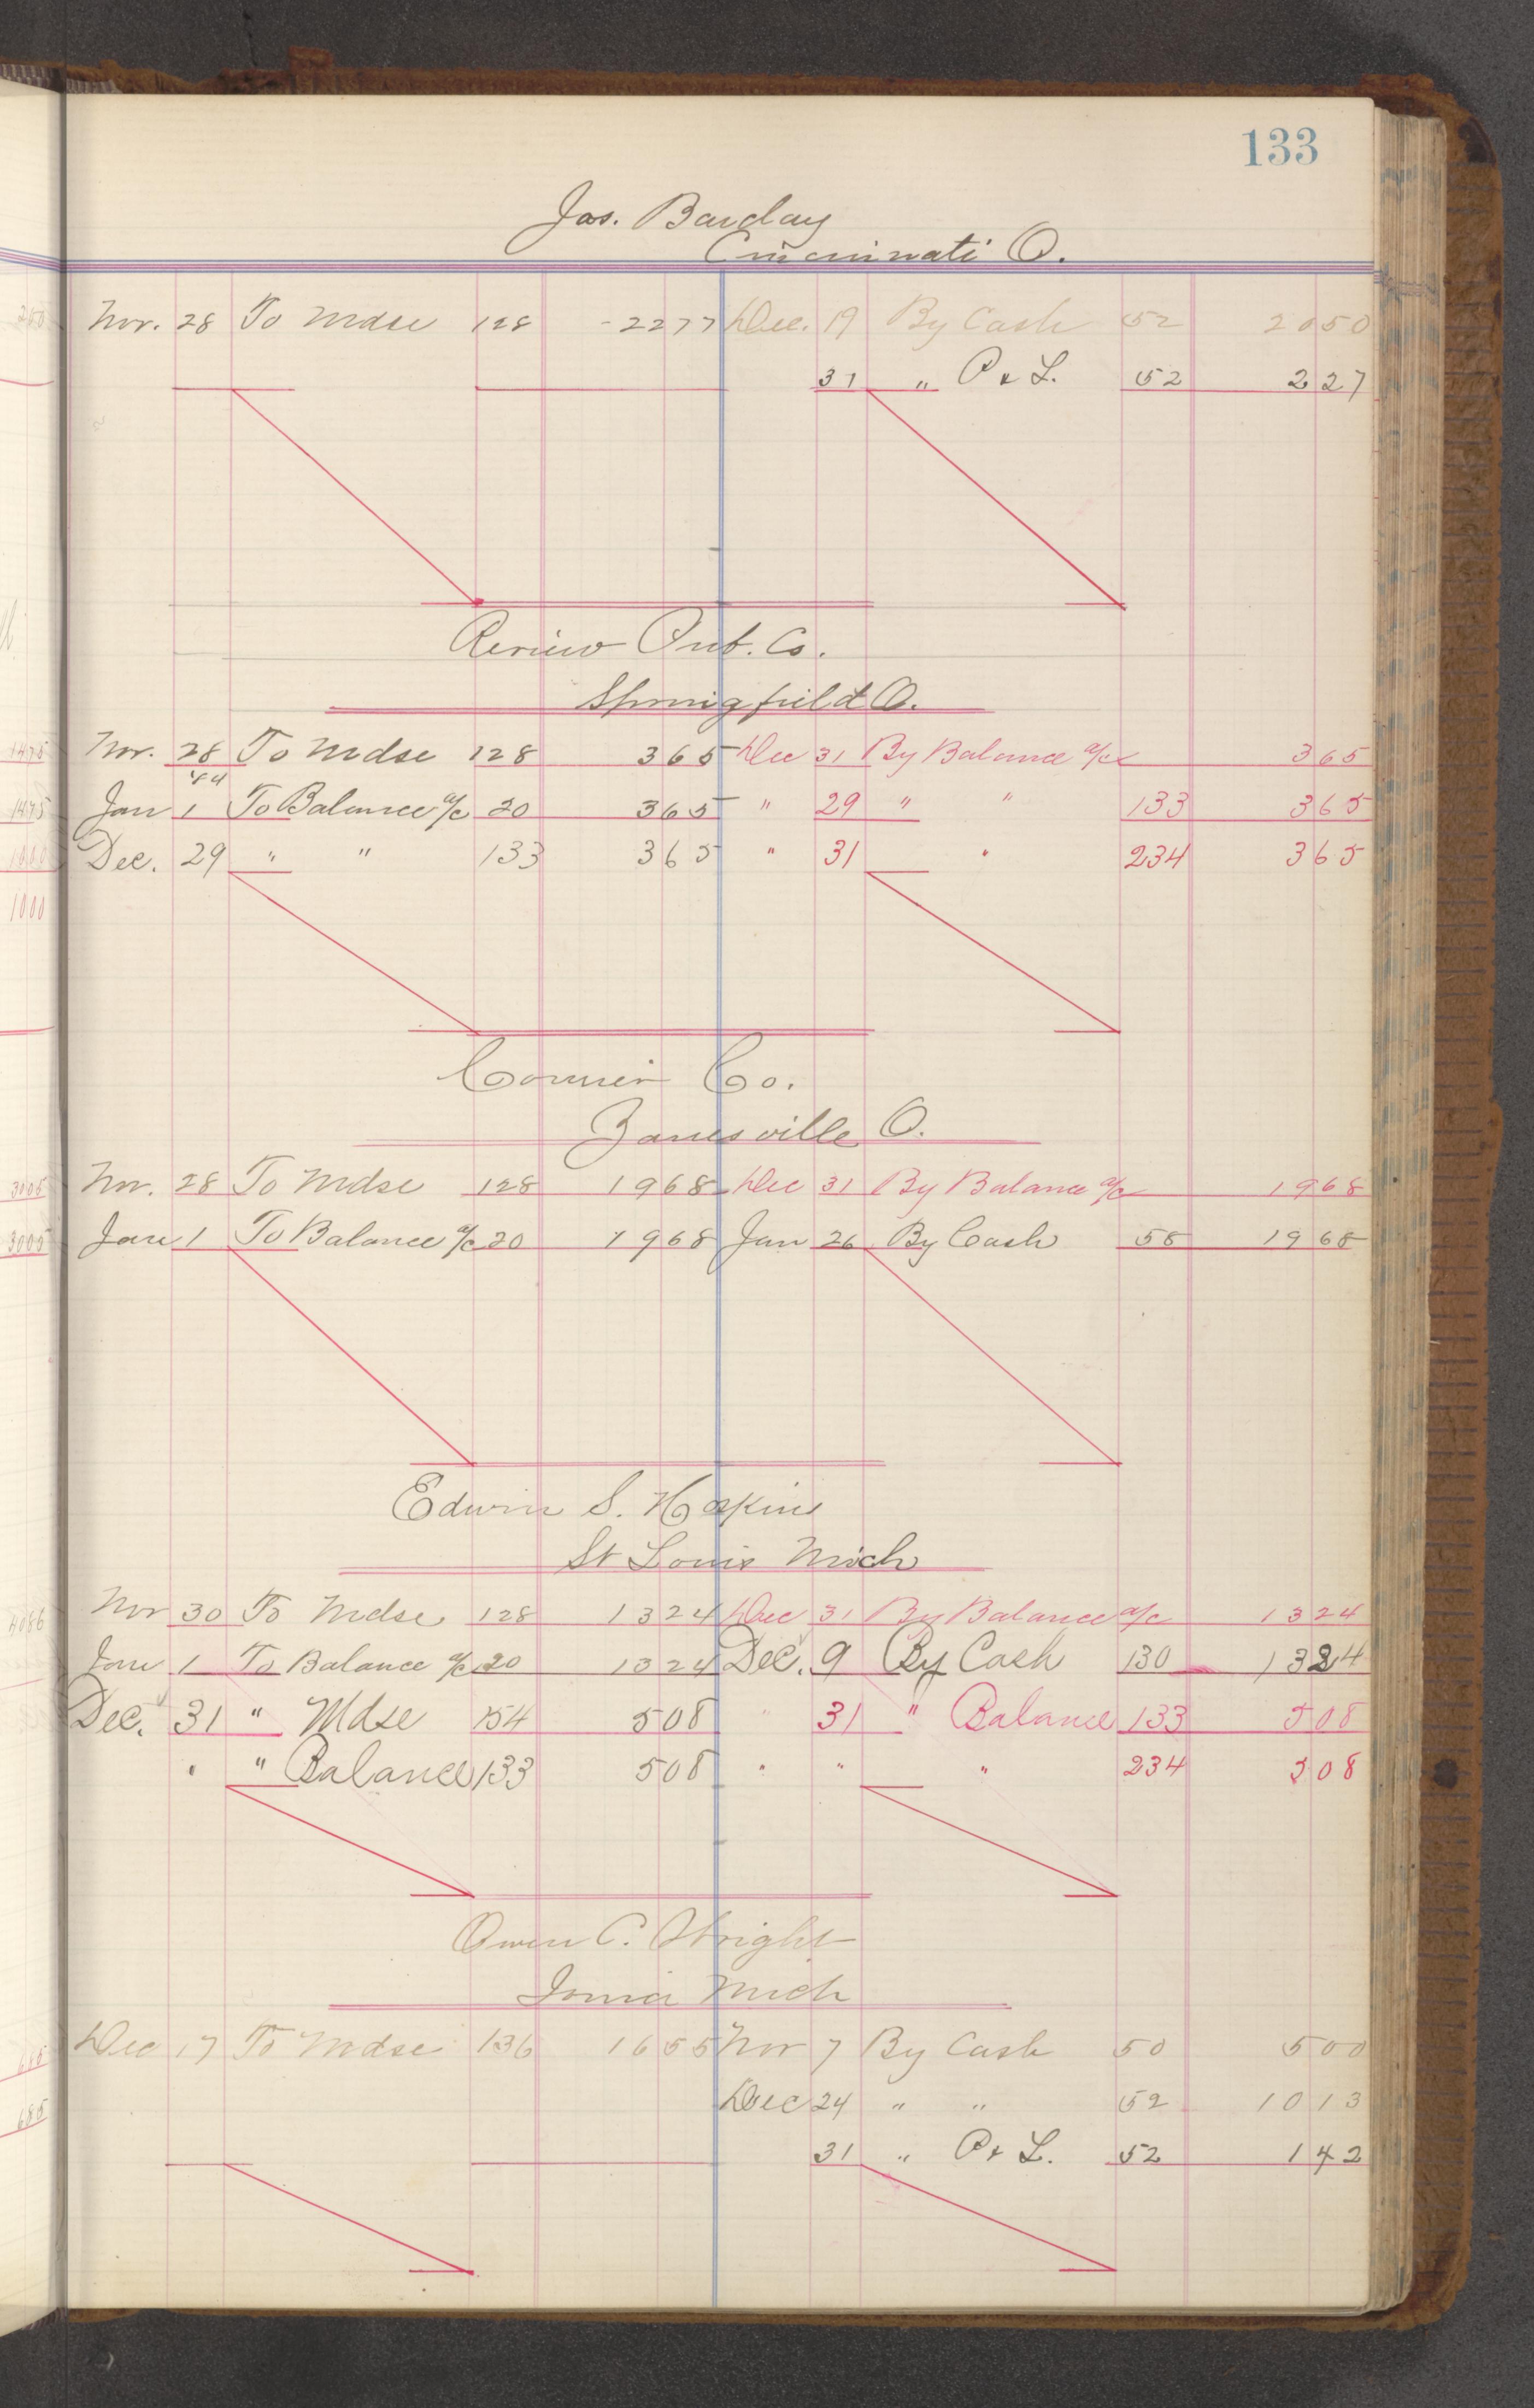 133
Jas. Barclay
Cincinnati O.
Nov. 28 To Mdse 128 2277 Dec. 19 By Cash 52 2050
31 " P & L. 52 227
Review Pub. Co.
Springfield O.
Nov. 28 To Mdse 128 365 Dec 31 By Balance a/c 365
'84
Jan 1 To Balance a/c 20 365 " 29 " " 133 365
Dec. 29 " " 133 365 " 31 " 234 365
Courier Co.
Zanesville O.
Nov. 28 To Mdse 128 1968 Dec 31 By Balance a/c 1968
Jan 1 To Balance a/c 20 1968 Jan 26 By Cash 58 1968
Edwin S. Hoskins
St Louis Mich
Nov 30 To Mdse 128 1324 Dec 31 By Balance a/c 1324
Jan 1 To Balance a/c 20 1324 Dec. 9 By Cash 130 1324
Dec. 31 " Mdse 154 508 " 31 " Balance 133 508
" " Balance 133 508 " " " 234 508
Owen C. Wright
Ionia Mich
Dec 17 To Mdse 136 1655 Nov 7 By Cash 50 500
Dec 24 " " 52 1013
31 " P & L. 52 142